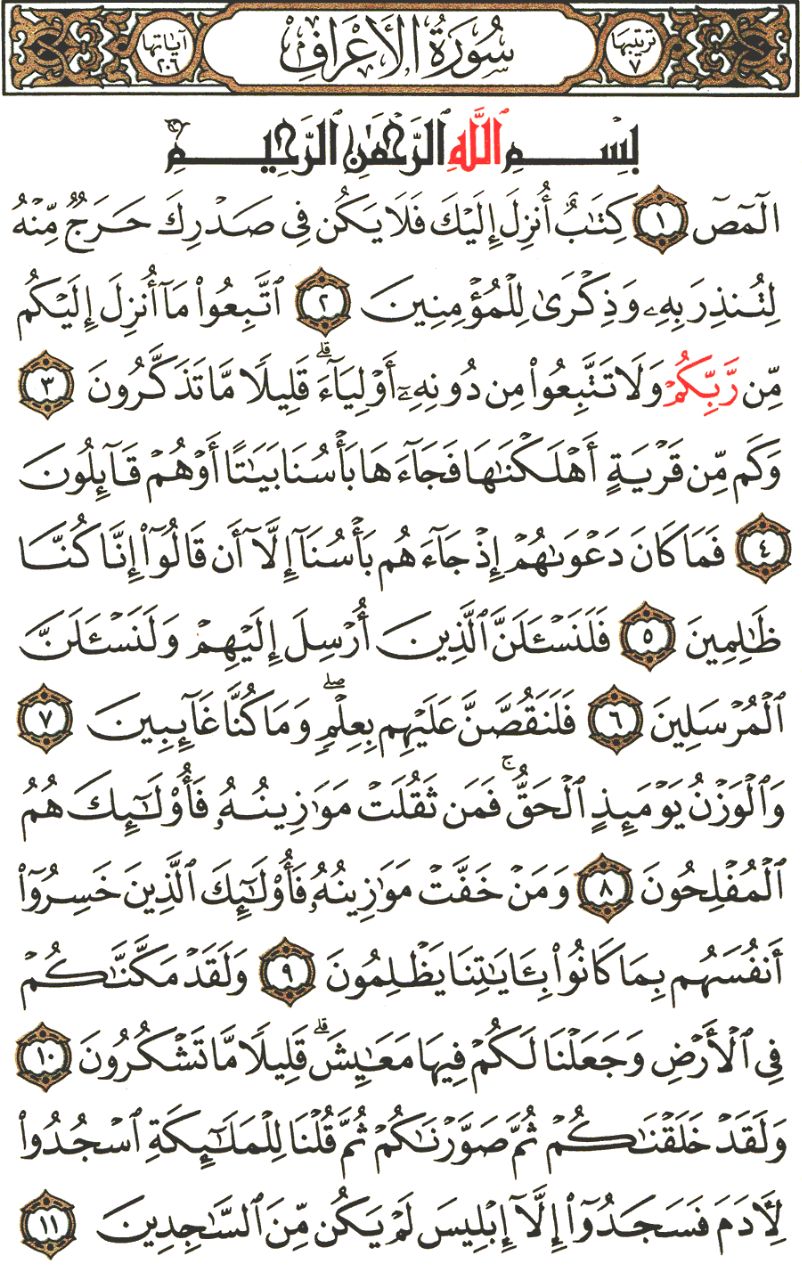 ترتيبها ٧ سُورَةُ الأَعْرَافِ آياتها ٢٠٦
بِسْمِ ٱللَّهِ ٱلرَّحْمَٰنِ ٱلرَّحِيمِ
الٓمٓصٓ ١ كِتَٰبٌ أُنزِلَ إِلَيْكَ فَلَا يَكُن فِى صَدْرِكَ حَرَجٌ مِّنْهُ
لِتُنذِرَ بِهِۦ وَذِكْرَىٰ لِلْمُؤْمِنِينَ ٢ ٱتَّبِعُوا۟ مَآ أُنزِلَ إِلَيْكُم
مِّن رَّبِّكُمْ وَلَا تَتَّبِعُوا۟ مِن دُونِهِۦٓ أَوْلِيَآءَۗ قَلِيلًا مَّا تَذَكَّرُونَ ٣
وَكَم مِّن قَرْيَةٍ أَهْلَكْنَٰهَا فَجَآءَهَا بَأْسُنَا بَيَٰتًا أَوْ هُمْ قَآئِلُونَ
٤ فَمَا كَانَ دَعْوَىٰهُمْ إِذْ جَآءَهُم بَأْسُنَآ إِلَّآ أَن قَالُوٓا۟ إِنَّا كُنَّا
ظَٰلِمِينَ ٥ فَلَنَسْـَٔلَنَّ ٱلَّذِينَ أُرْسِلَ إِلَيْهِمْ وَلَنَسْـَٔلَنَّ
ٱلْمُرْسَلِينَ ٦ فَلَنَقُصَّنَّ عَلَيْهِم بِعِلْمٍۖ وَمَا كُنَّا غَآئِبِينَ ٧
وَٱلْوَزْنُ يَوْمَئِذٍ ٱلْحَقُّۚ فَمَن ثَقُلَتْ مَوَٰزِينُهُۥ فَأُو۟لَٰٓئِكَ هُمُ
ٱلْمُفْلِحُونَ ٨ وَمَنْ خَفَّتْ مَوَٰزِينُهُۥ فَأُو۟لَٰٓئِكَ ٱلَّذِينَ خَسِرُوٓا۟
أَنفُسَهُم بِمَا كَانُوا۟ بِـَٔايَٰتِنَا يَظْلِمُونَ ٩ وَلَقَدْ مَكَّنَّٰكُمْ
فِى ٱلْأَرْضِ وَجَعَلْنَا لَكُمْ فِيهَا مَعَٰيِشَۗ قَلِيلًا مَّا تَشْكُرُونَ ١٠
وَلَقَدْ خَلَقْنَٰكُمْ ثُمَّ صَوَّرْنَٰكُمْ ثُمَّ قُلْنَا لِلْمَلَٰٓئِكَةِ ٱسْجُدُوا۟
لِـَٔادَمَ فَسَجَدُوٓا۟ إِلَّآ إِبْلِيسَ لَمْ يَكُن مِّنَ ٱلسَّٰجِدِينَ ١١